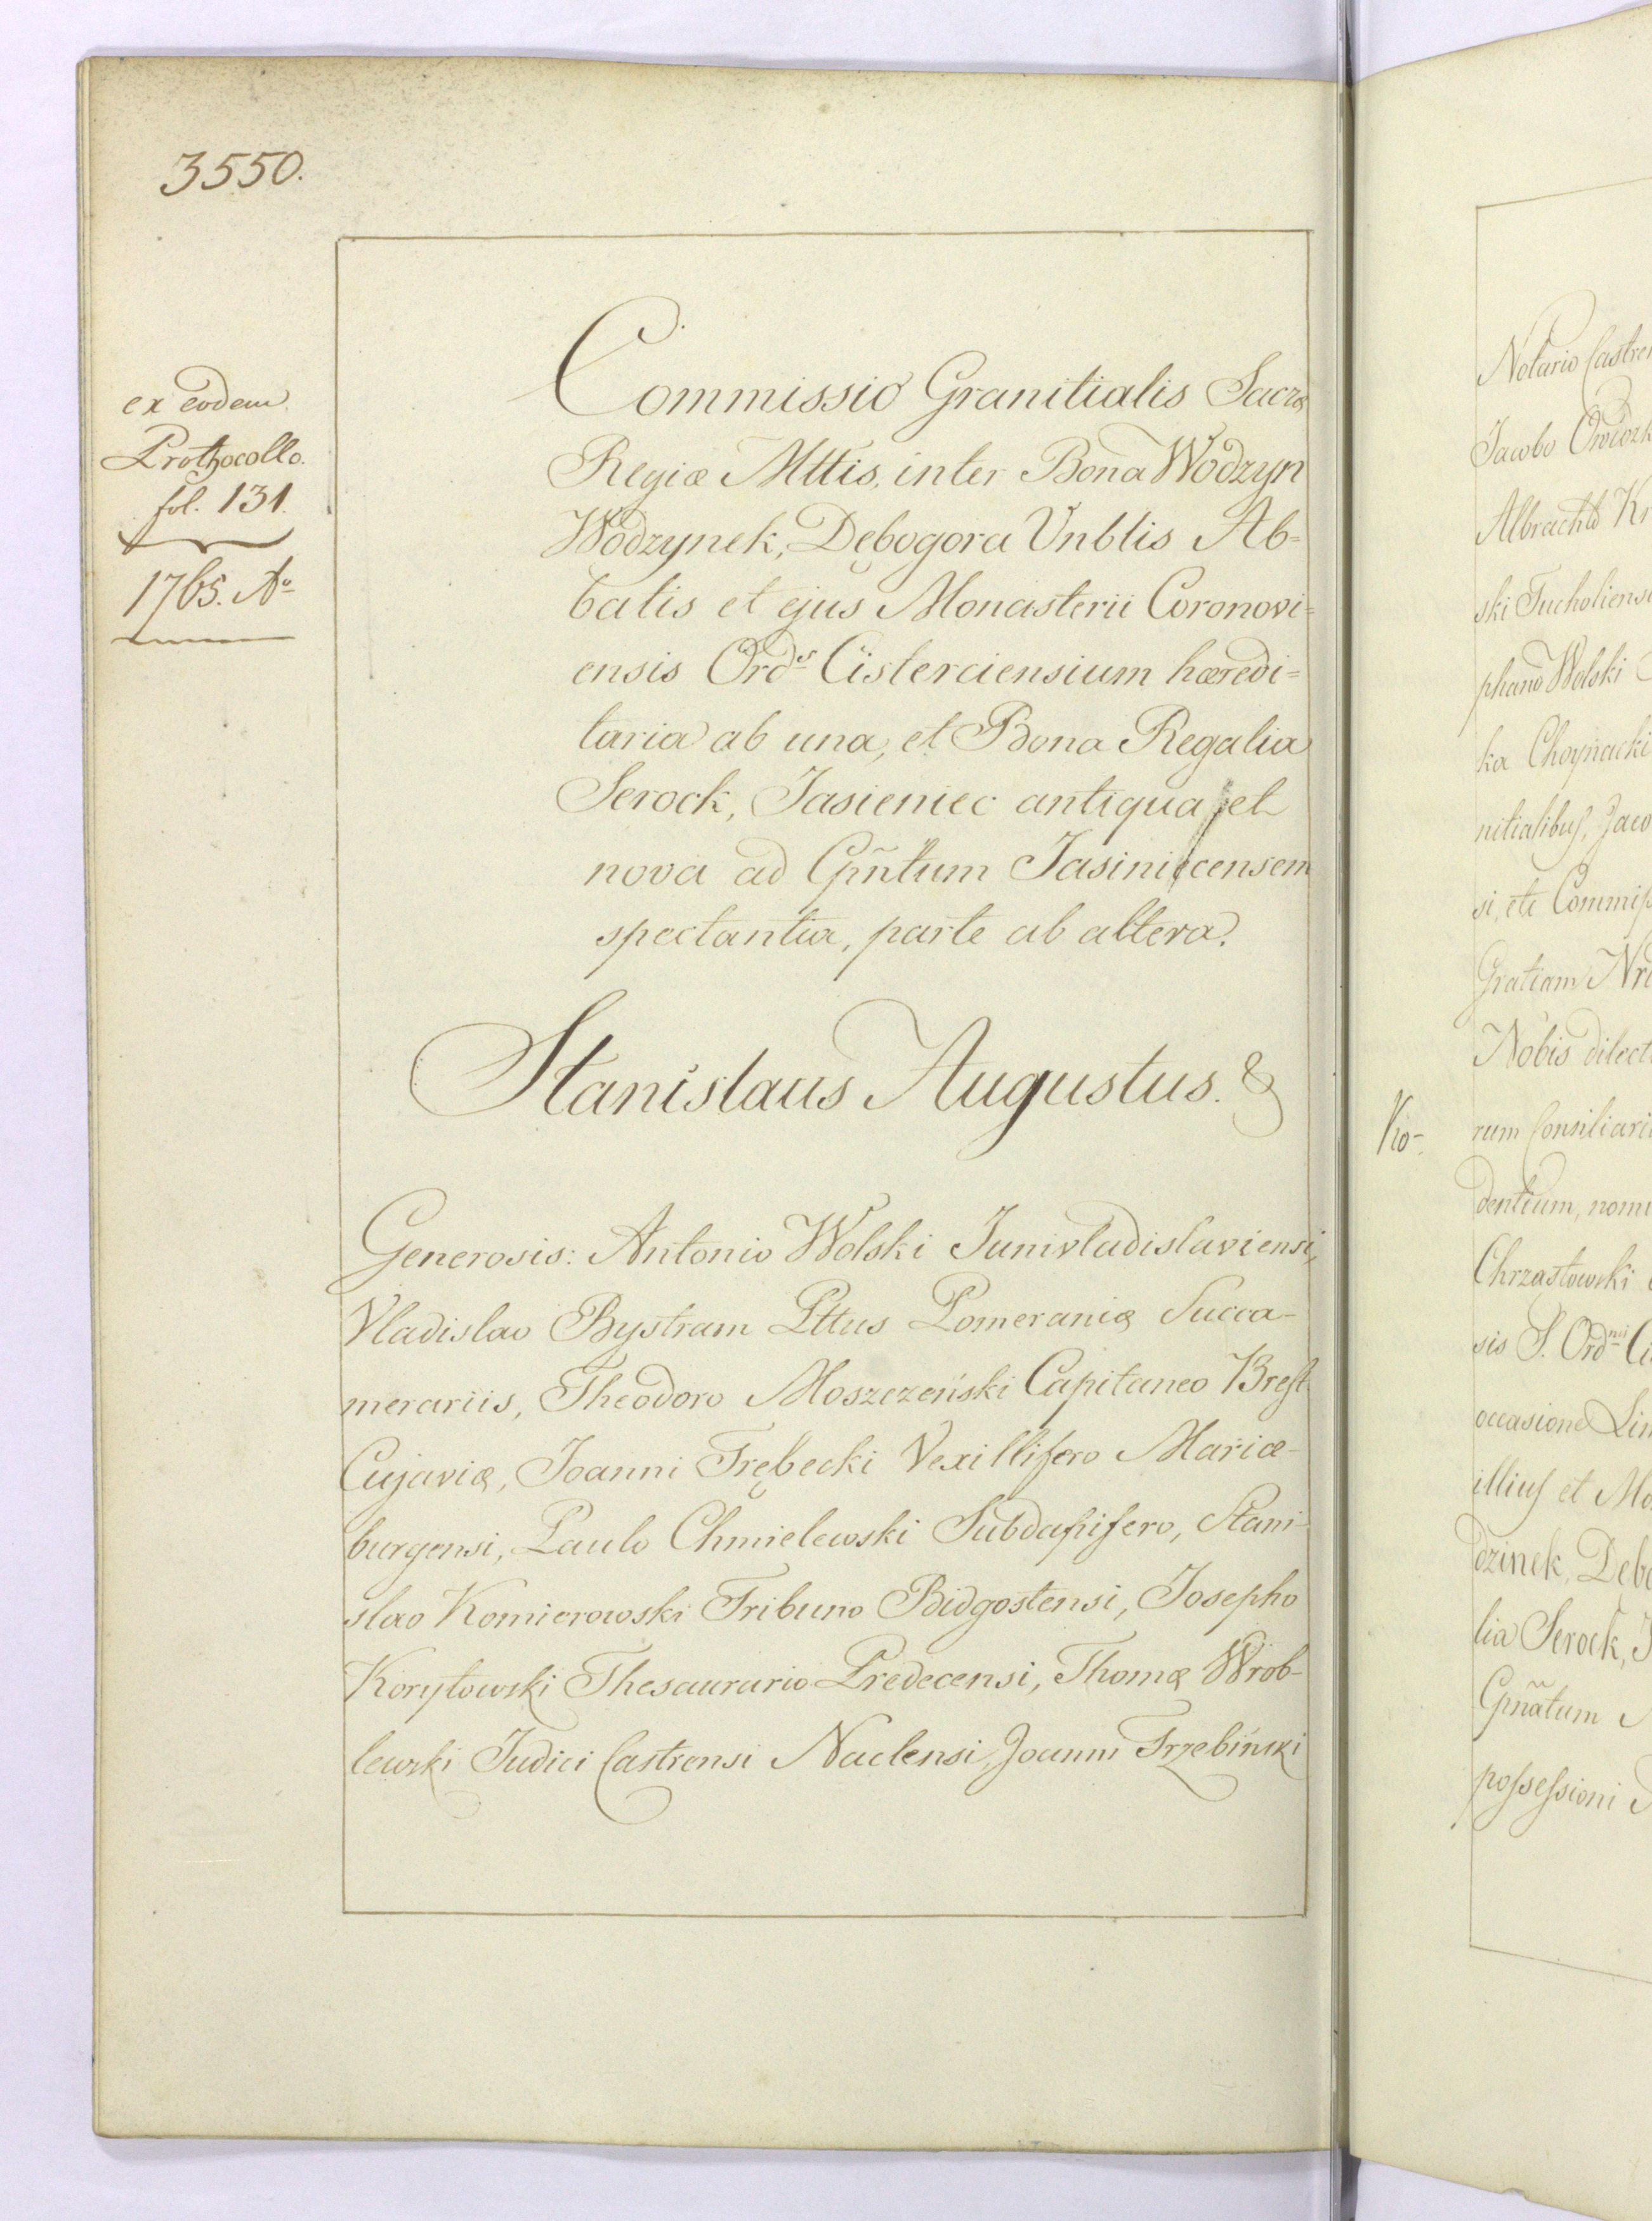 3550.
ex eodem
Prothocollo.
fol. 131.
1765. Aº
Commissio Granitialis Sacræ
Regiæ Mttis, inter Bona Wodzyn
Wodzynek, Dębogora Vnblis Ab=
batis et ejus Monasterii Coronovi=
ensis Ordˢ Cisterciensium hæredi=
taria ab una, et Bona Regalia
Serock, Jasieniec antiqua et
nova ad Cpñtum Jasiniecensem
spectantia, parte ab altera.
Stanislaus Augustus. &
Generosis: Antonio Wolski Junivladislaviensi,
Vladislao Bystram Pttus Pomeraniæ Succa-
merariis, Theodoro Moszczeński Capitaneo Brest
Cujaviæ, Joanni Trębecki Vexillifero Mariæ-
burgensi, Paulo Chmielewski Subdapifero, Stani-
slao Komierowski Tribuno Bidgostensi, Josepho
Korytowski Thesaurario Predecensi, Thomæ Wrob-
lewski Judici Castrensi Naclensi, Joanni Trzebiński
Notario
Jacobo
Albrachto
ski
Wolski
ka Choynacki
nitialibus,
si, etc
Gratiam
Nobis
Kio-
rum
dentium,
Chrząstowski
sis S. Ordⁿⁱˢ
occasione
illius et
dzinek,
lia Serock,
Cpñatum
possessioni